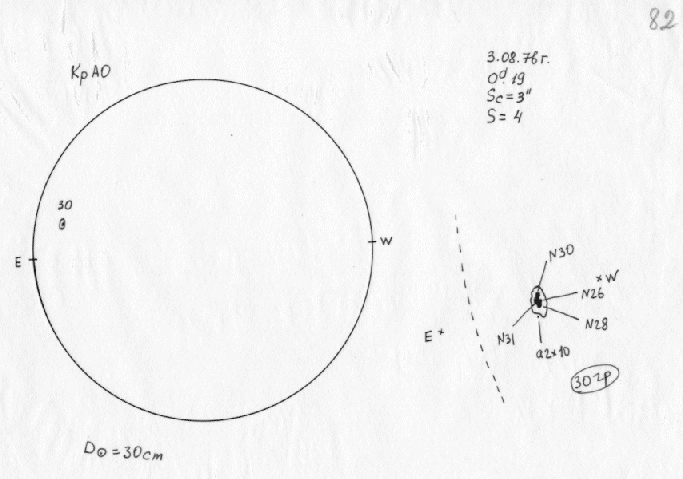 82
КрАО
3.08.76г.
0ᵈ.19
Sc=3"
S=4
30
E
W
N30
×W
N26
N28
E×
N31
α2×10
30гр
D⊙=30cm